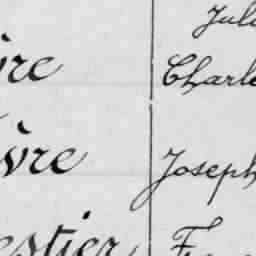 Jul
ire Charle
èvre Joseph
estier F